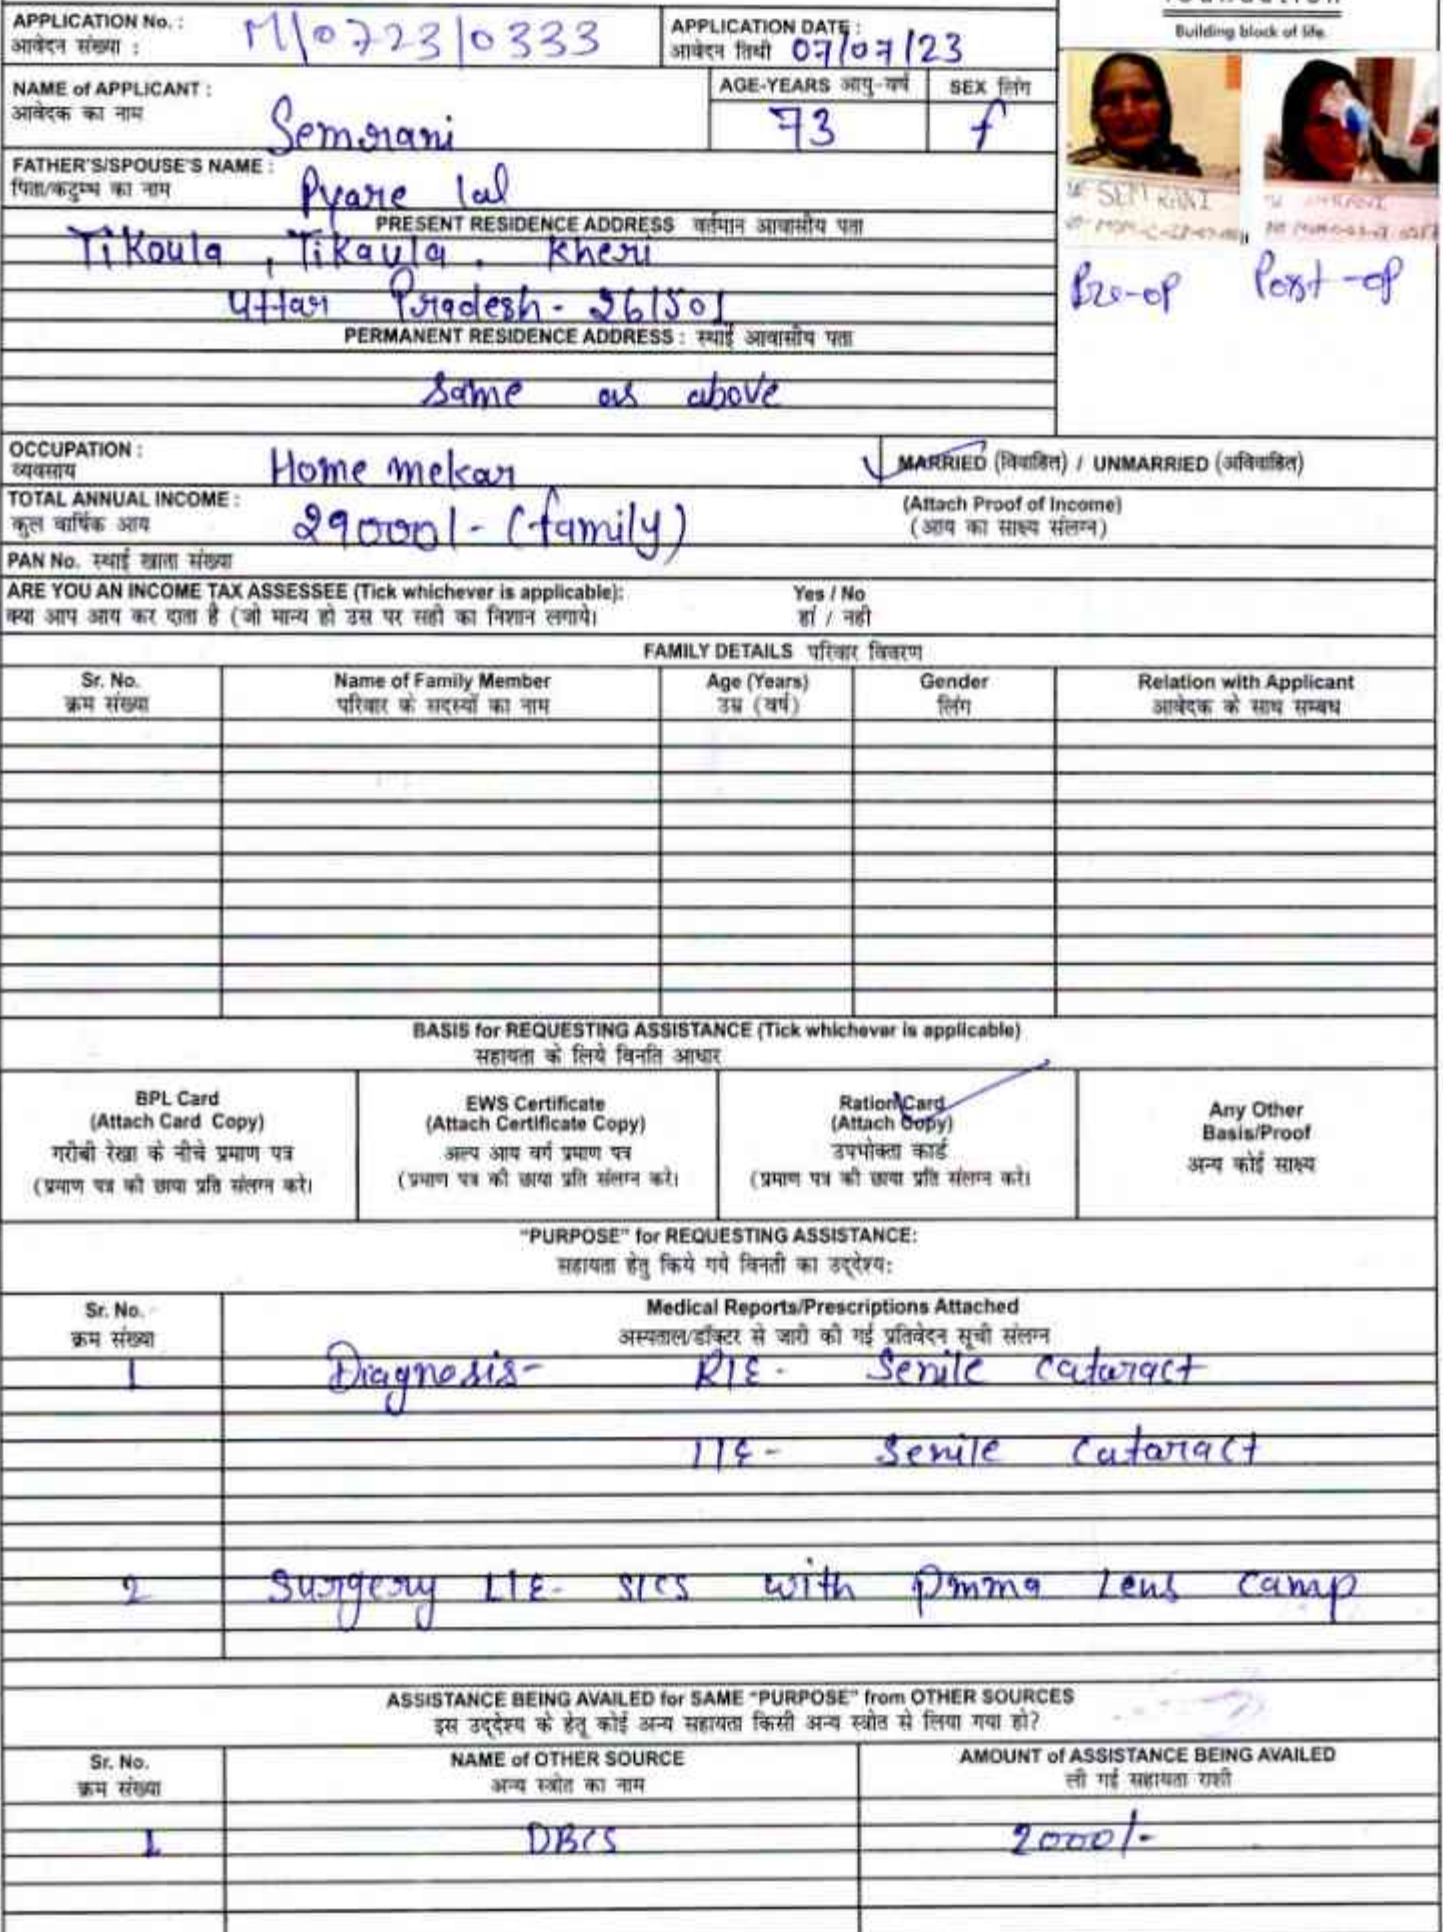 Building block of life.
APPLICATION No. :
आवेदन संख्या :
M/0723/0333
APPLICATION DATE :
आवेदन तिथी 07/07/23
NAME of APPLICANT :
आवेदक का नाम
Semrani
AGE-YEARS आयु-वर्ष
73
SEX लिंग
f
FATHER'S/SPOUSE'S NAME :
पिता/कटुम्ब का नाम
Pyare lal
SEMRANI
PRESENT RESIDENCE ADDRESS वर्तमान आवासीय पता
Tikoula , Tikaula , Kheri
Uttar Pradesh - 261501
Pre-op Post-op
PERMANENT RESIDENCE ADDRESS : स्थाई आवासीय पता
Same as above
OCCUPATION :
व्यवसाय
Home mekar
MARRIED (विवाहित) / UNMARRIED (अविवाहित)
TOTAL ANNUAL INCOME :
कुल वार्षिक आय
29000/- (family)
(Attach Proof of Income)
(आय का साक्ष्य संलग्न)
PAN No. स्थाई खाता संख्या
ARE YOU AN INCOME TAX ASSESSEE (Tick whichever is applicable): Yes / No
क्या आप आय कर दाता है (जो मान्य हो उस पर सही का निशान लगाये। हां / नही
FAMILY DETAILS परिवार विवरण
Sr. No.
क्रम संख्या
Name of Family Member
परिवार के सदस्यों का नाम
Age (Years)
उम्र (वर्ष)
Gender
लिंग
Relation with Applicant
आवेदक के साथ सम्बध
BASIS for REQUESTING ASSISTANCE (Tick whichever is applicable)
सहायता के लिये विनति आधार
BPL Card
(Attach Card Copy)
गरीबी रेखा के नीचे प्रमाण पत्र
(प्रमाण पत्र की छाया प्रति संलग्न करे।
EWS Certificate
(Attach Certificate Copy)
अल्प आय वर्ग प्रमाण पत्र
(प्रमाण पत्र की छाया प्रति संलग्न करे।
Ration Card
(Attach Copy)
उपभोक्ता कार्ड
(प्रमाण पत्र की छाया प्रति संलग्न करे।
Any Other
Basis/Proof
अन्य कोई साक्ष्य
"PURPOSE" for REQUESTING ASSISTANCE:
सहायता हेतु किये गये विनती का उद्देश्य:
Sr. No.
क्रम संख्या
Medical Reports/Prescriptions Attached
अस्पताल/डॉक्टर से जारी की गई प्रतिवेदन सूची संलग्न
1 Diagnosis- R/E- Senile Cataract
L/E- Senile Cataract
2 Surgery L/E- SICS with pmma Lens camp
ASSISTANCE BEING AVAILED for SAME "PURPOSE" from OTHER SOURCES
इस उद्देश्य के हेतू कोई अन्य सहायता किसी अन्य स्त्रोत से लिया गया हो?
Sr. No.
क्रम संख्या
NAME of OTHER SOURCE
अन्य स्त्रोत का नाम
AMOUNT of ASSISTANCE BEING AVAILED
ली गई सहायता राशी
1 DBCS 2000/-